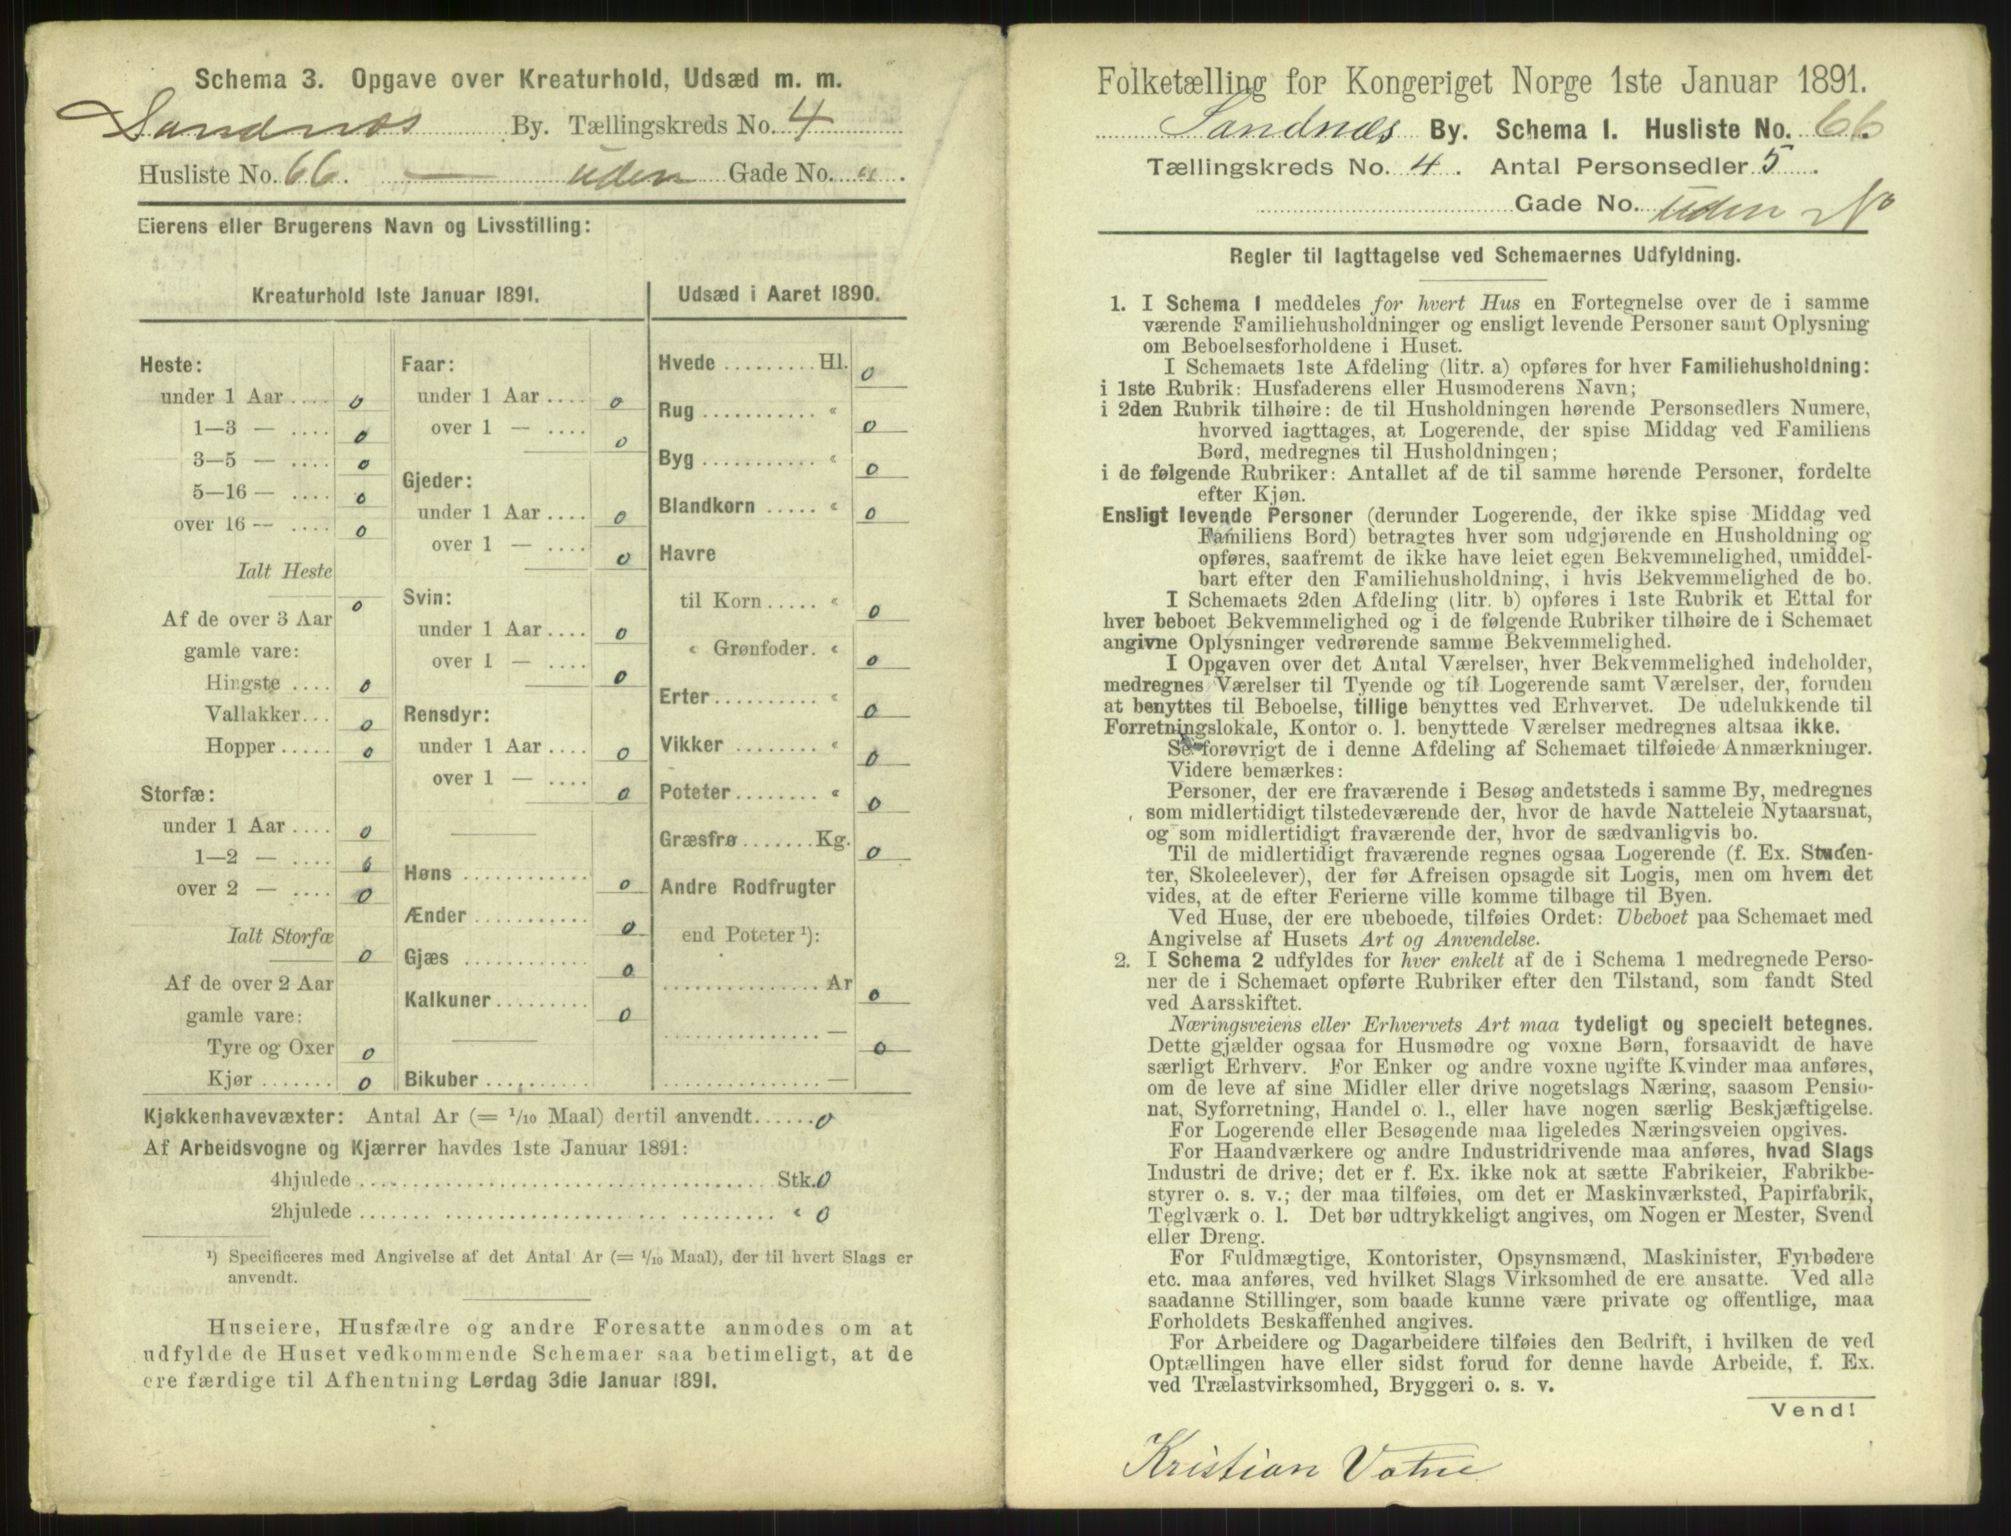 Schema 3. Opgave over Kreaturhold, Udsæd m. m.
Sandnæs By. Tællingskreds No. 4
Husliste No. 66. — uden Gade No. "
Eierens eller Brugerens Navn og Livsstilling:
Kreaturhold 1ste Januar 1891.
Heste:
under 1 Aar .... 0
1—3 — .... 0
3—5 — .... 0
5—16 — .... 0
over 16 — .... 0
Ialt Heste 0
Af de over 3 Aar
gamle vare:
Hingste .... 0
Vallakker... 0
Hopper..... 0
Storfæ:
under 1 Aar .... 0
1—2 — .... 0
over 2 — .... 0
Ialt Storfæ 0
Af de over 2 Aar
gamle vare:
Tyre og Oxer 0
Kjør....... 0
Faar:
under 1 Aar .... 0
over 1 — .... 0
Gjeder:
under 1 Aar .... 0
over 1 — .... 0
Svin:
under 1 Aar .... 0
over 1 — .... 0
Rensdyr:
under 1 Aar .... 0
over 1 — .... 0
Høns ............ 0
Ænder ........... 0
Gjæs ............ 0
Kalkuner......... 0
Bikuber ..........
Udsæd i Aaret 1890.
Hvede ......... Hl. 0
Rug ........... " 0
Byg ........... " 0
Blandkorn ..... " 0
Havre
til Korn..... " 0
" Grønfoder. " 0
Erter.......... " 0
Vikker ........ " 0
Poteter........ " 0
Græsfrø.......Kg. 0
Andre Rodfrugter
end Poteter ¹):
............... Ar 0
............... — 0
............... —
Kjøkkenhavevæxter: Antal Ar (= 1/10 Maal) dertil anvendt...... 0
Af Arbeidsvogne og Kjærrer havdes 1ste Januar 1891:
4hjulede ........................................ Stk. 0
2hjulede ....... ..................... ......... " 0
¹) Specificeres med Angivelse af det Antal Ar (= 1/10 Maal), der til hvert Slags er
anvendt.
Huseiere, Husfædre og andre Foresatte anmodes om at
udfylde de Huset vedkommende Schemaer saa betimeligt, at de
ere færdige til Afhentning Lørdag 3die Januar 1891.
Folketælling for Kongeriget Norge 1ste Januar 1891.
Sandnæs By. Schema 1. Husliste No. 66.
Tællingskreds No. 4. Antal Personsedler 5.
Gade No. uden No
Regler til Iagttagelse ved Schemaernes Udfyldning.
1. I Schema 1 meddeles for hvert Hus en Fortegnelse over de i samme
værende Familiehusholdninger og ensligt levende Personer samt Oplysning
om Beboelsesforholdene i Huset.
I Schemaets 1ste Afdeling (litr. a) opføres for hver Familiehusholdning:
i 1ste Rubrik: Husfaderens eller Husmoderens Navn;
i 2den Rubrik tilhøire: de til Husholdningen hørende Personsedlers Numere,
hvorved iagttages, at Logerende, der spise Middag ved Familiens
Bord, medregnes til Husholdningen;
i de følgende Rubriker: Antallet af de til samme hørende Personer, fordelte
efter Kjøn.
Ensligt levende Personer (derunder Logerende, der ikke spise Middag ved
Familiens Bord) betragtes hver som udgjørende en Husholdning og
opføres, saafremt de ikke have leiet egen Bekvemmelighed, umiddel-
bart efter den Familiehusholdning, i hvis Bekvemmelighed de bo.
I Schemaets 2den Afdeling (litr. b) opføres i 1ste Rubrik et Ettal for
hver beboet Bekvemmelighed og i de følgende Rubriker tilhøire de i Schemaet
angivne Oplysninger vedrørende samme Bekvemmelighed.
I Opgaven over det Antal Værelser, hver Bekvemmelighed indeholder,
medregnes Værelser til Tyende og til Logerende samt Værelser, der, foruden
at benyttes til Beboelse, tillige benyttes ved Erhvervet. De udelukkende til
Forretningslokale, Kontor o. l. benyttede Værelser medregnes altsaa ikke.
Se forøvrigt de i denne Afdeling af Schemaet tilføiede Anmærkninger.
Videre bemærkes:
Personer, der ere fraværende i Besøg andetsteds i samme By, medregnes
som midlertidigt tilstedeværende der, hvor de havde Natteleie Nytaarsnat,
og som midlertidigt fraværende der, hvor de sædvanligvis bo.
Til de midlertidigt fraværende regnes ogsaa Logerende (f. Ex. Studen-
ter, Skoleelever), der før Afreisen opsagde sit Logis, men om hvem det
vides, at de efter Ferierne ville komme tilbage til Byen.
Ved Huse, der ere ubeboede, tilføies Ordet: Ubeboet paa Schemaet med
Angivelse af Husets Art og Anvendelse.
2. I Schema 2 udfyldes for hver enkelt af de i Schema 1 medregnede Perso-
ner de i Schemaet opførte Rubriker efter den Tilstand, som fandt Sted
ved Aarsskiftet.
Næringsveiens eller Erhvervets Art maa tydeligt og specielt betegnes.
Dette gjælder ogsaa for Husmødre og voxne Børn, forsaavidt de have
særligt Erhverv. For Enker og andre voxne ugifte Kvinder maa anføres,
om de leve af sine Midler eller drive nogetslags Næring, saasom Pensio-
nat, Syforretning, Handel o. l., eller have nogen særlig Beskjæftigelse.
For Logerende eller Besøgende maa ligeledes Næringsveien opgives.
For Haandværkere og andre Industridrivende maa anføres, hvad Slags
Industri de drive; det er f. Ex. ikke nok at sætte Fabrikeier, Fabrikbe-
styrer o. s. v.; der maa tilføies, om det er Maskinværksted, Papirfabrik,
Teglværk o. l. Det bør udtrykkeligt angives, om Nogen er Mester, Svend
eller Dreng.
For Fuldmægtige, Kontorister, Opsynsmænd, Maskinister, Fyrbødere
etc. maa anføres, ved hvilket Slags Virksomhed de ere ansatte. Ved alle
saadanne Stillinger, som baade kunne være private og offentlige, maa
Forholdets Beskaffenhed angives.
For Arbeidere og Dagarbeidere tilføies den Bedrift, i hvilken de ved
Optællingen have eller sidst forud for denne havde Arbeide, f. Ex.
ved Trælastvirksomhed, Bryggeri o. s. v.
Vend!
Kristian Vatne